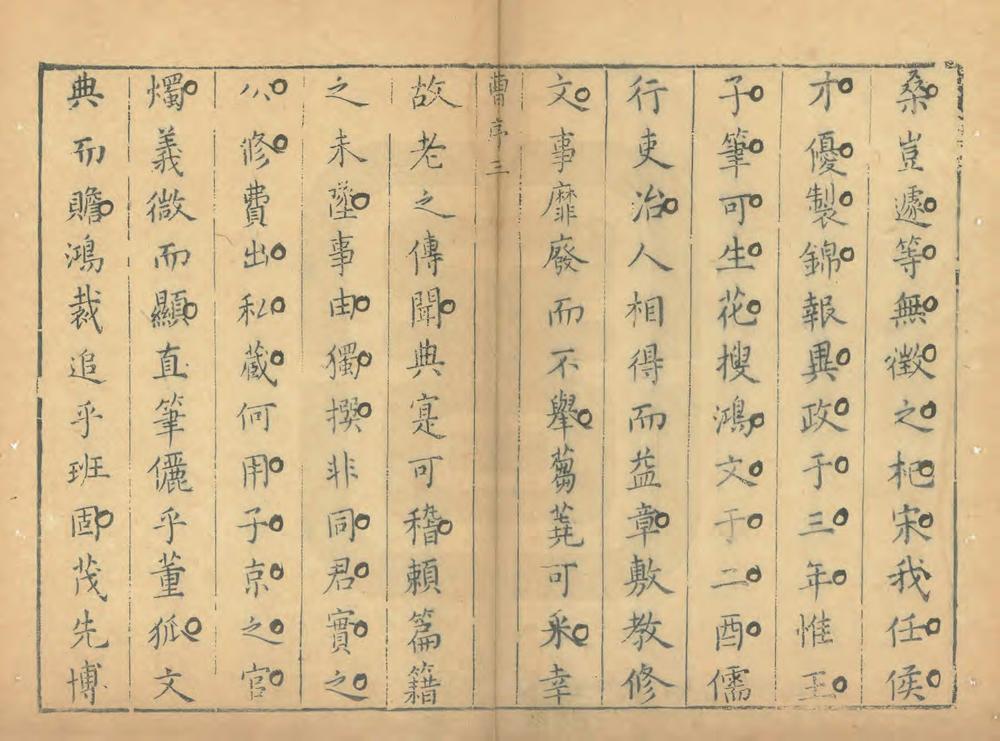 桑豈遽等無徵之杞宋我任侯
才優製錦報異政于三年惟王
子筆可生花搜鴻文于二酉儒
行吏治人相得而益章敷教修
文事靡廢而不舉蒭蕘可采幸
曹序三
故老之傳聞典寔可稽賴篇籍
之未墜事由獨撰非同君實之
八修費出私藏何用子京之官
燭義微而顯直筆儷乎董狐文
典而贍鴻裁追乎班固茂先博